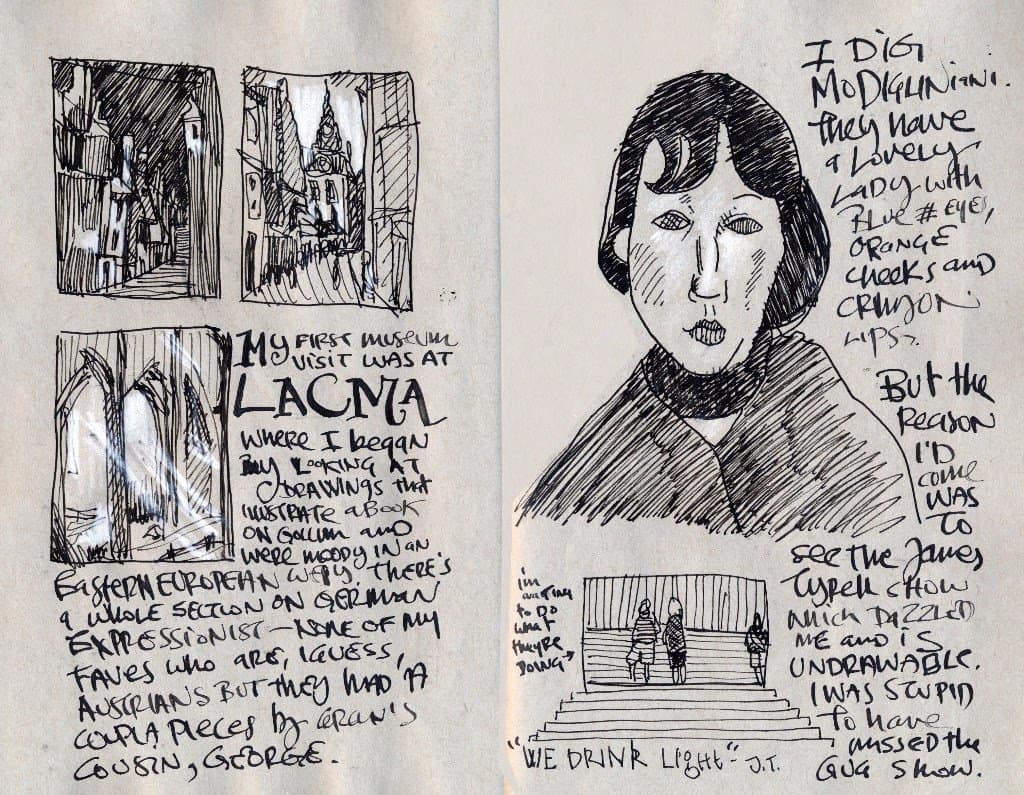 My FIRST MUSEUM
VISIT WAS AT
LACMA
WHERE I began
By LOOKING AT
DRAWINGS that
ILLUSTRATE a Book
ON GOLLUM and
WERE MOODY IN AN
EASTERN EUROPEAN WAY. THERE'S
A WHOLE SECTION ON GERMAN
EXPRESSIONIST — NONE OF MY
FAVES WHO ARE, I GUESS,
AUSTRIANS BUT THEY HAD A
COUPLA PIECES by GRAN'S
COUSIN, GEORGE.
I DIG
MODIGLINIANI.
They have
a LOVELY
LADY with
BLUE # EYES,
ORANGE
cheeks and
CRIMSON
LIPS.
But the
REASON
I'D
come
WAS
TO
see the James
Tyrell SHOW
which DAZZLED
ME and is
UNDRAWABLE.
I WAS STUPID
To have
missed the
GUG SHOW.
I'm
waiting
TO DO
what
they're
DOING
"WE DRINK Light" - J.T.